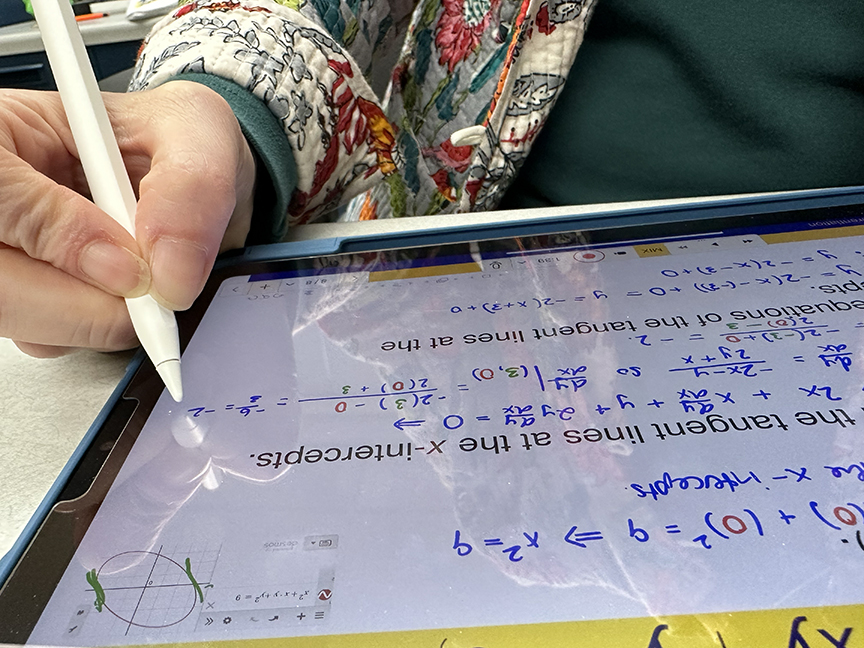 xy y
(0) + (0)² = 9 ⇒ x² = 9
the x-intercepts.
the tangent lines at the x-intercepts.
2x + x dy/dx + y + 2y dy/dx = 0 ⇒
dy/dx = -2x-y / 2y+x so dy/dx |(3,0) = -2(3) - 0 / 2(0) + 3 = -6/3 = -2
-2(-3)+0 / 2(0)-3 = -2.
equations of the tangent lines at the
y = -2(x-(-3)) + 0 = y = -2(x+3)+0
y = -2(x-3)+0
x² + x·y + y² = 9
desmos
MIX
1:39
8/8